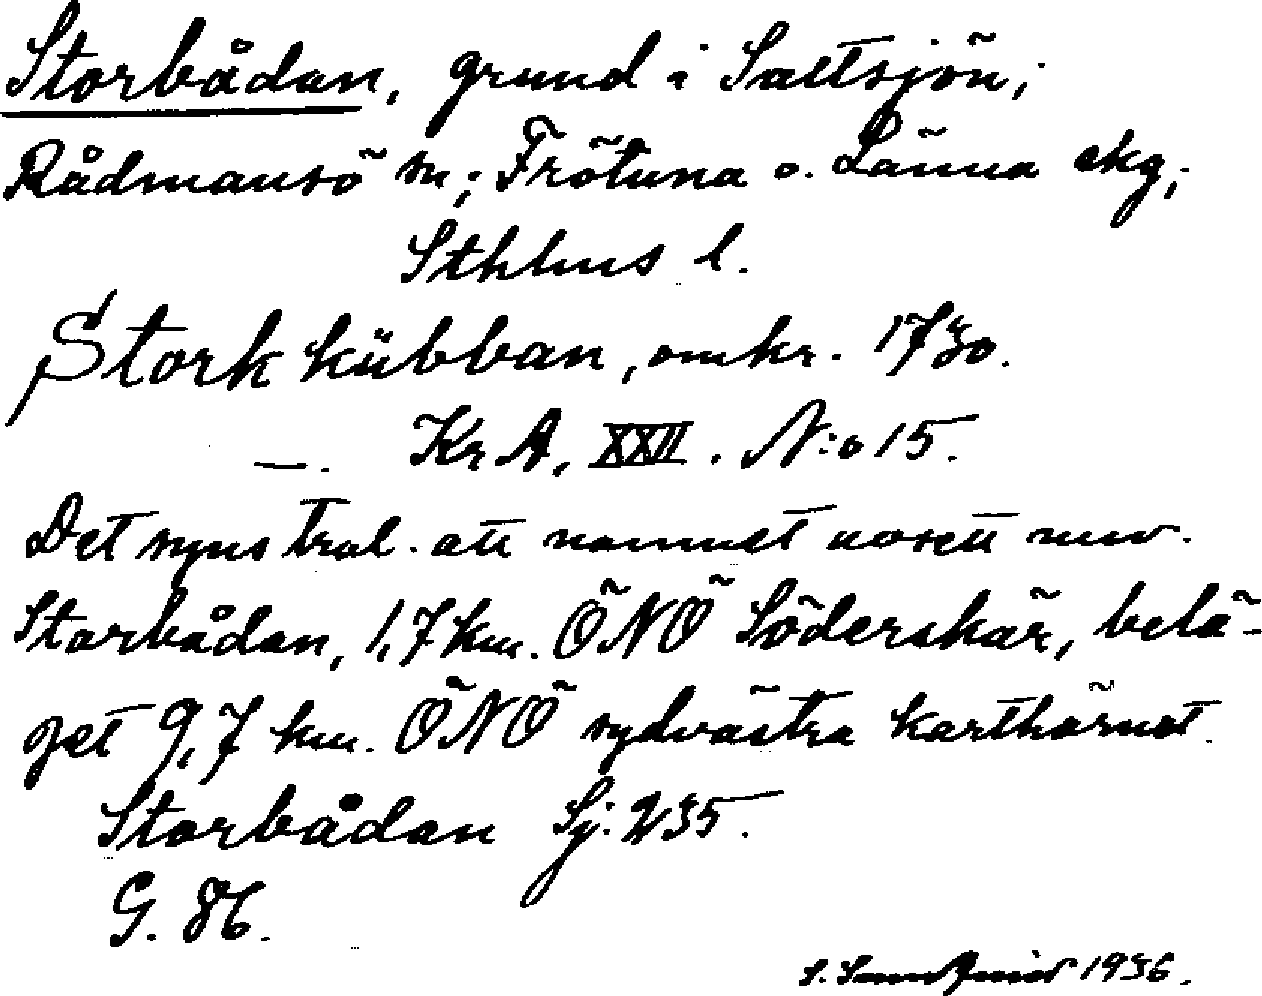 Storbådan, grund i Saltsjön;
Rådmansö sn; Frötuna o. Länna skg;
Sthlms l.
Stork kübban, omkr. 1730.
—. KrA, XXII. N:o 15.
Det synes trol. att namnet avsett nuv.
Storbådan, 1,7 km. ÖNÖ Söderskär, belä-
get 9,7 km. ÖNÖ sydvästra karthörnet.
Storbådan Sj: 235.
G. 86.
S. 1936.